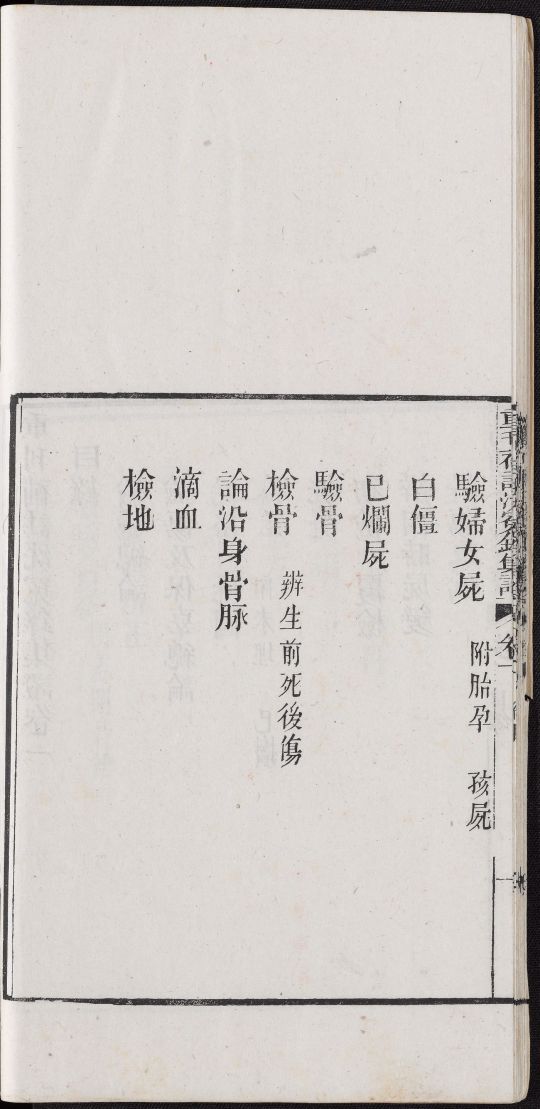 驗婦女屍 附胎孕 孩屍
白僵
已爛屍
驗骨
檢骨 辨生前死後傷
論沿身骨脉
滴血
檢地